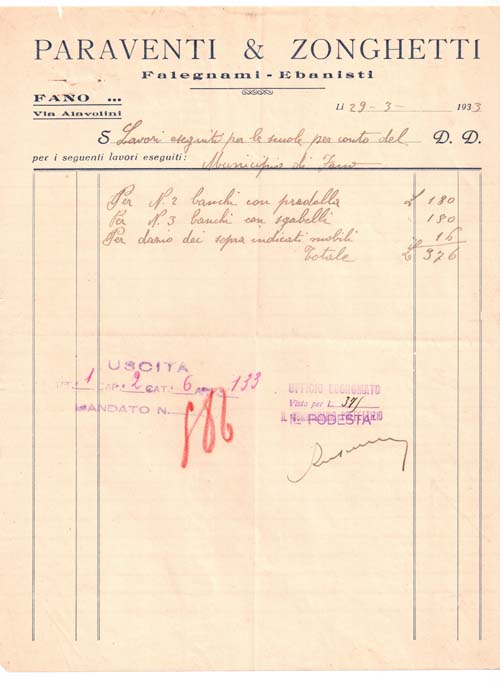 PARAVENTI & ZONGHETTI
Falegnami - Ebanisti
FANO ...
Via Alavolini
Li 29-3- 1933
S Lavori eseguiti per le scuole per conto del D. D.
per i seguenti lavori eseguiti: Municipio di Fano
Per N. 2 banchi con predella £ 180
Per N. 3 banchi con sgabelli 180
Per dazio dei sopra indicati mobili 16
Totale £ 376
USCITA
1 CAP. 2 CAT. 6 133
MANDATO N.
UFFICIO ECONOMATO
Visto per L.
IL PODESTA'